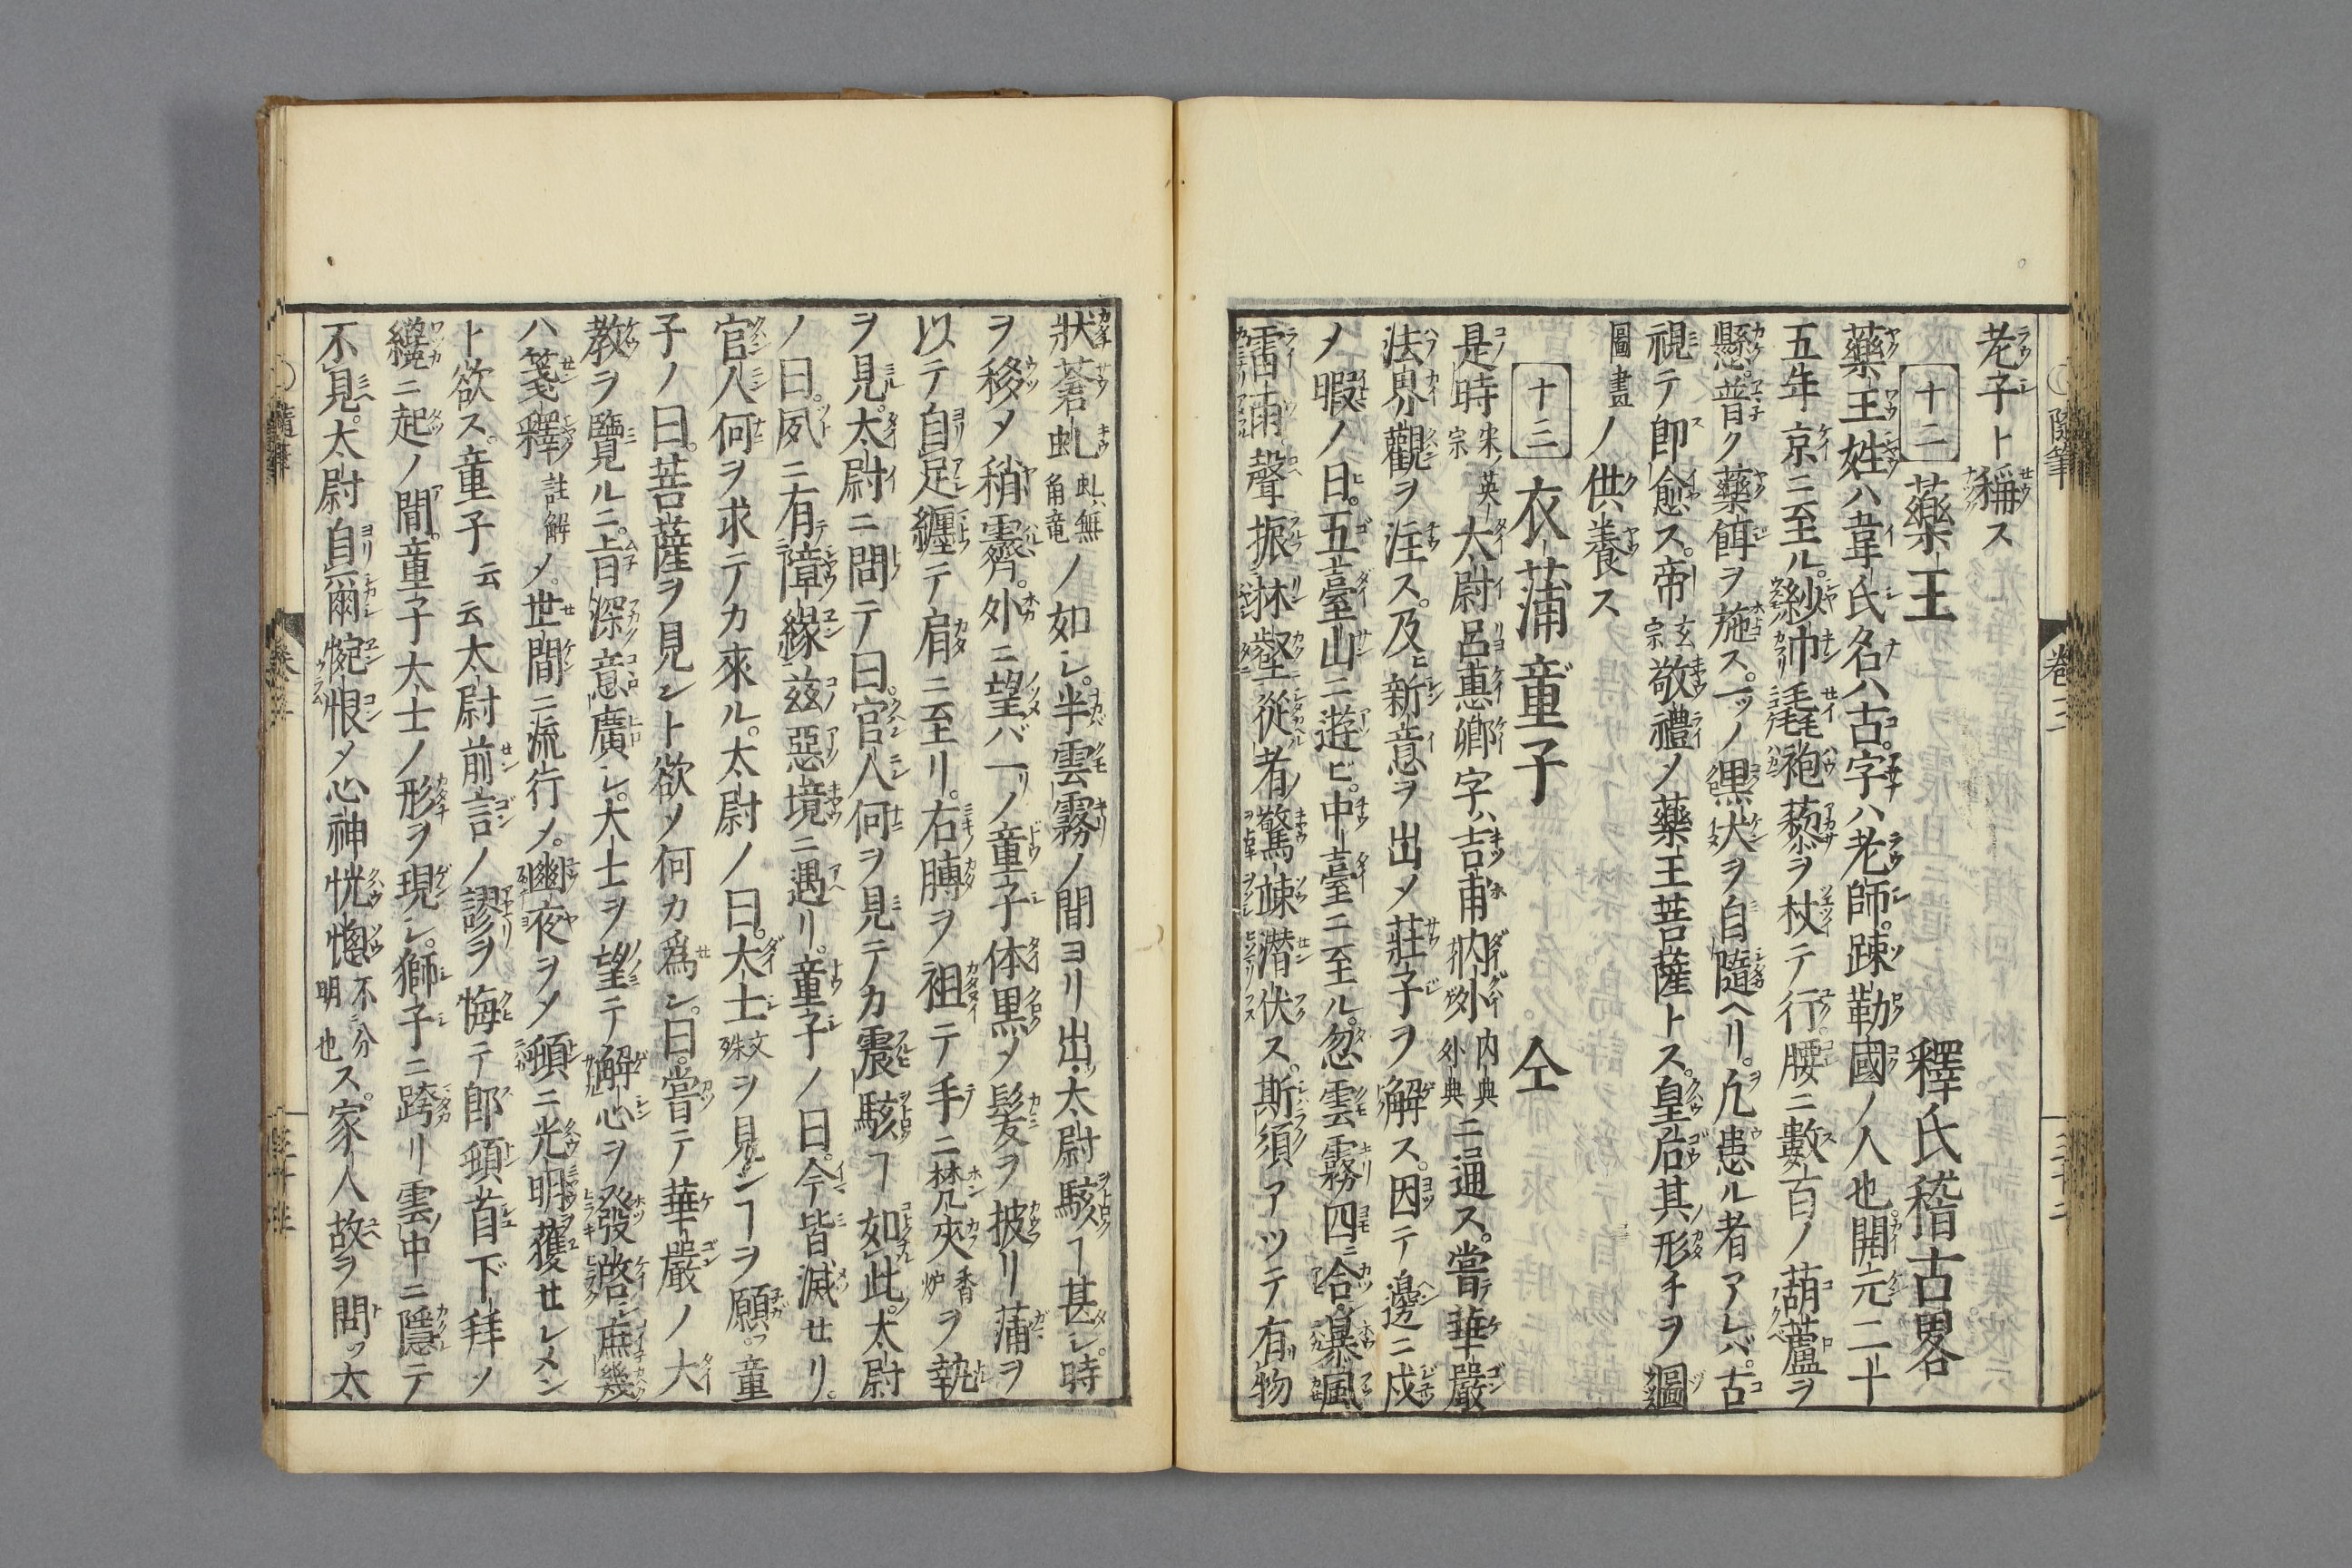 老子ト稱ス
十二 藥王 釋氏稽古畧
藥王姓ハ韋氏名ハ古。字ハ老師。踈勒國ノ人也。開元二十
五年京ニ至ル。紗巾毳袍藜ヲ杖テ行。腰ニ數百ノ葫蘆ヲ
懸。普ク藥餌ヲ施ス。一ツノ黒犬ヲ自隨ヘリ。凡患ル者アレバ。古
視テ即愈ス。帝玄宗敬禮メ藥王菩薩トス。皇后其形チヲ
圖畫ノ供養ス
十三 衣蒲童子 仝
是時宋ノ英宗大尉呂惠卿字ハ吉甫内外内典外典ニ通ス。嘗テ華嚴
法界觀ヲ注ス。及ヒ新意ヲ出メ莊子ヲ解ス。因テ邊ニ戍
メ暇ノ日。五臺山ニ遊ビ。中臺ニ至ル。忽雲霧四ニ合。暴風
雷雨聲振林壑從者驚竦潜伏ス。斯須アツテ有物
狀蒼虬虬ハ無角竜ノ如シ。半雲霧ノ間ヨリ出。太尉駭ヿ甚シ。時
ヲ移メ稍霽。外ニ望バ一リノ童子体黒メ髮ヲ披リ蒲ヲ
以テ自足纏テ肩ニ至リ。右膊ヲ袒テ手ニ梵夾香炉ヲ執
ヲ見。太尉ニ問テ曰。官人何ヲ見テカ震駭ヿ如此。太尉
ノ曰。夙ニ有障縁茲惡境ニ遇リ。童子ノ曰。今皆滅せリ。
官人何ヲ求テカ來ル。太尉ノ曰。大士文殊ヲ見ンヿヲ願フ。童
子ノ曰。菩薩ヲ見ント欲メ何カ爲ン。曰。嘗テ華嚴ノ大
教ヲ覽ルニ。旨深意廣シ。大士ヲ望テ解心ヲ發啓シ庶幾
ハ箋釋註解メ。世間ニ流行メ。幽夜ヲメ頓ニ光明獲せシメン
ト欲ス。童子云云太尉前言ノ謬ヲ悔テ郎頓首下拜メ
纔ニ起ノ間。童子大士ノ形ヲ現シ。獅子ニ跨リ雲中ニ隱テ
不見。太尉自爾惋恨メ心神恍惚不分明也ス。家人故ヲ問ッ太
隨筆 卷三 三十二